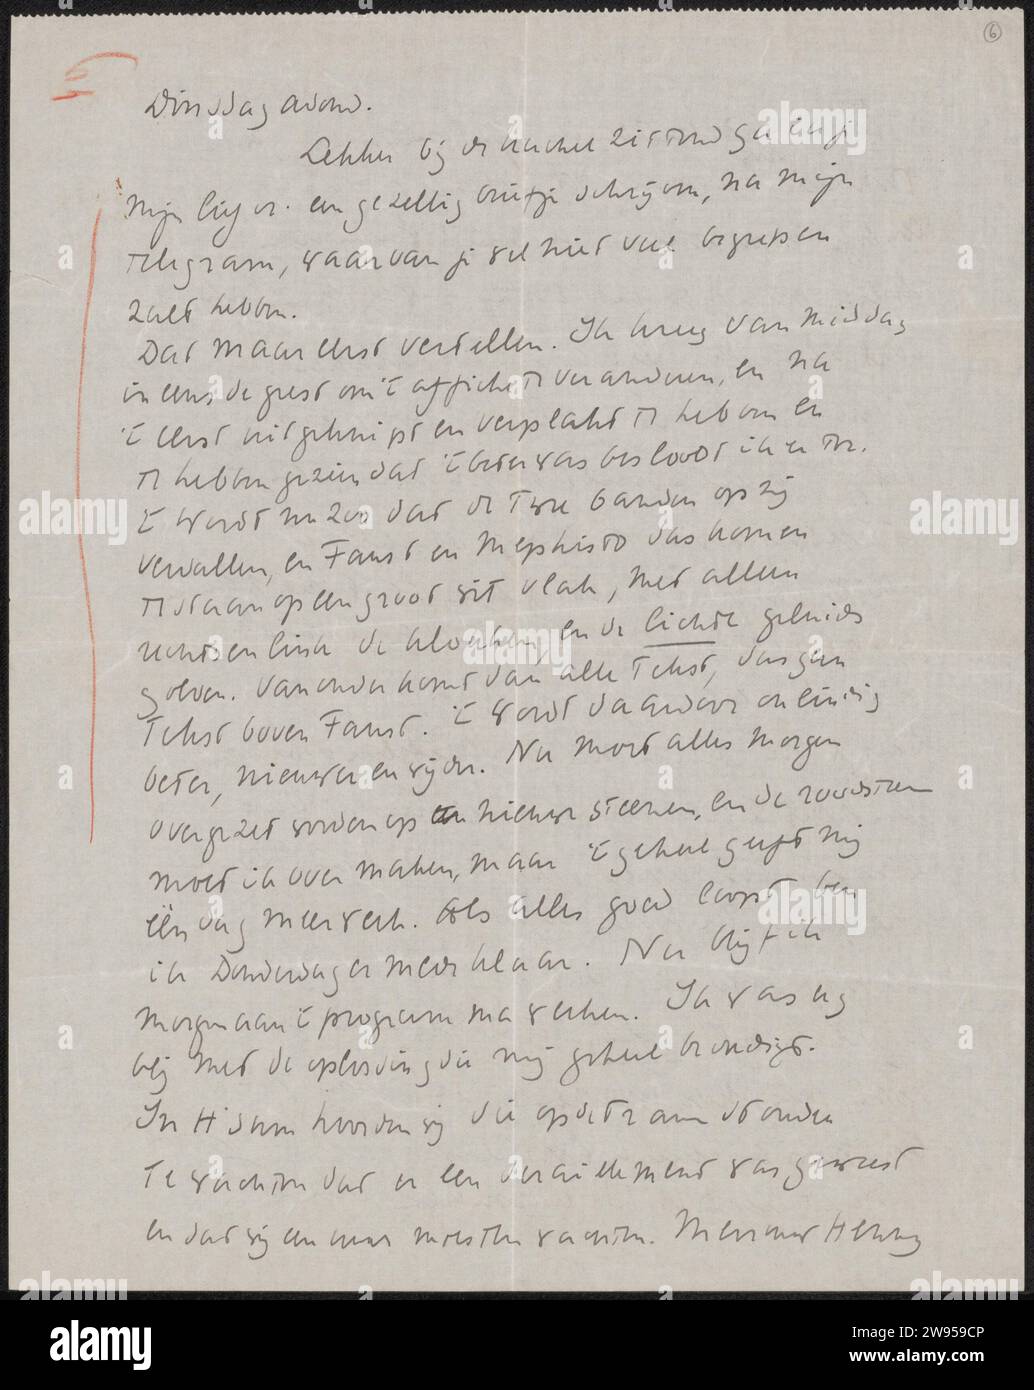 6
Dinsdag avond.
Lekker bij de kachel zittend ga ik je
mijn lief er. een gezellig briefje schrijven, na mijn
telegram, waarvan je wel niet veel begrepen
zult hebben.
Dat maar eerst vertellen. Ik kreeg vanmiddag
ineens de geest om 't affiche te veranderen, en na
't eerst uitgeknipt en verplakt te hebben en
te hebben gezien dat 't beter was besloot ik er toe.
't Wordt nu zoo dat de twee banden op zij
vervallen, en Faust en Mephisto dus komen
te staan op een groot wit vlak, met alleen
rechts en links de kloeken, en de lichte geluids
golven. Van onder komt dan alle tekst, dus geen
tekst boven Faust. 't Wordt daardoor oneindig
beter, nieuwer en wijder. Nu moet alles morgen
overgezet worden op een nieuwe steenen, en de roodsteen
moet ik over maken, maar 't geheel geeft mij
één dag meer werk. Als alles goed loopt ben
ik Donderdag er mede klaar. Nu blijf ik
morgen aan 't program maar werken. Ik was erg
blij met de oplossing die mij geheel bevredigt.
In H'dam hoorden wij die op de tram stonden
te wachten dat er een deraillement was geweest
en dat wij een uur moesten wachten. Mevrouw